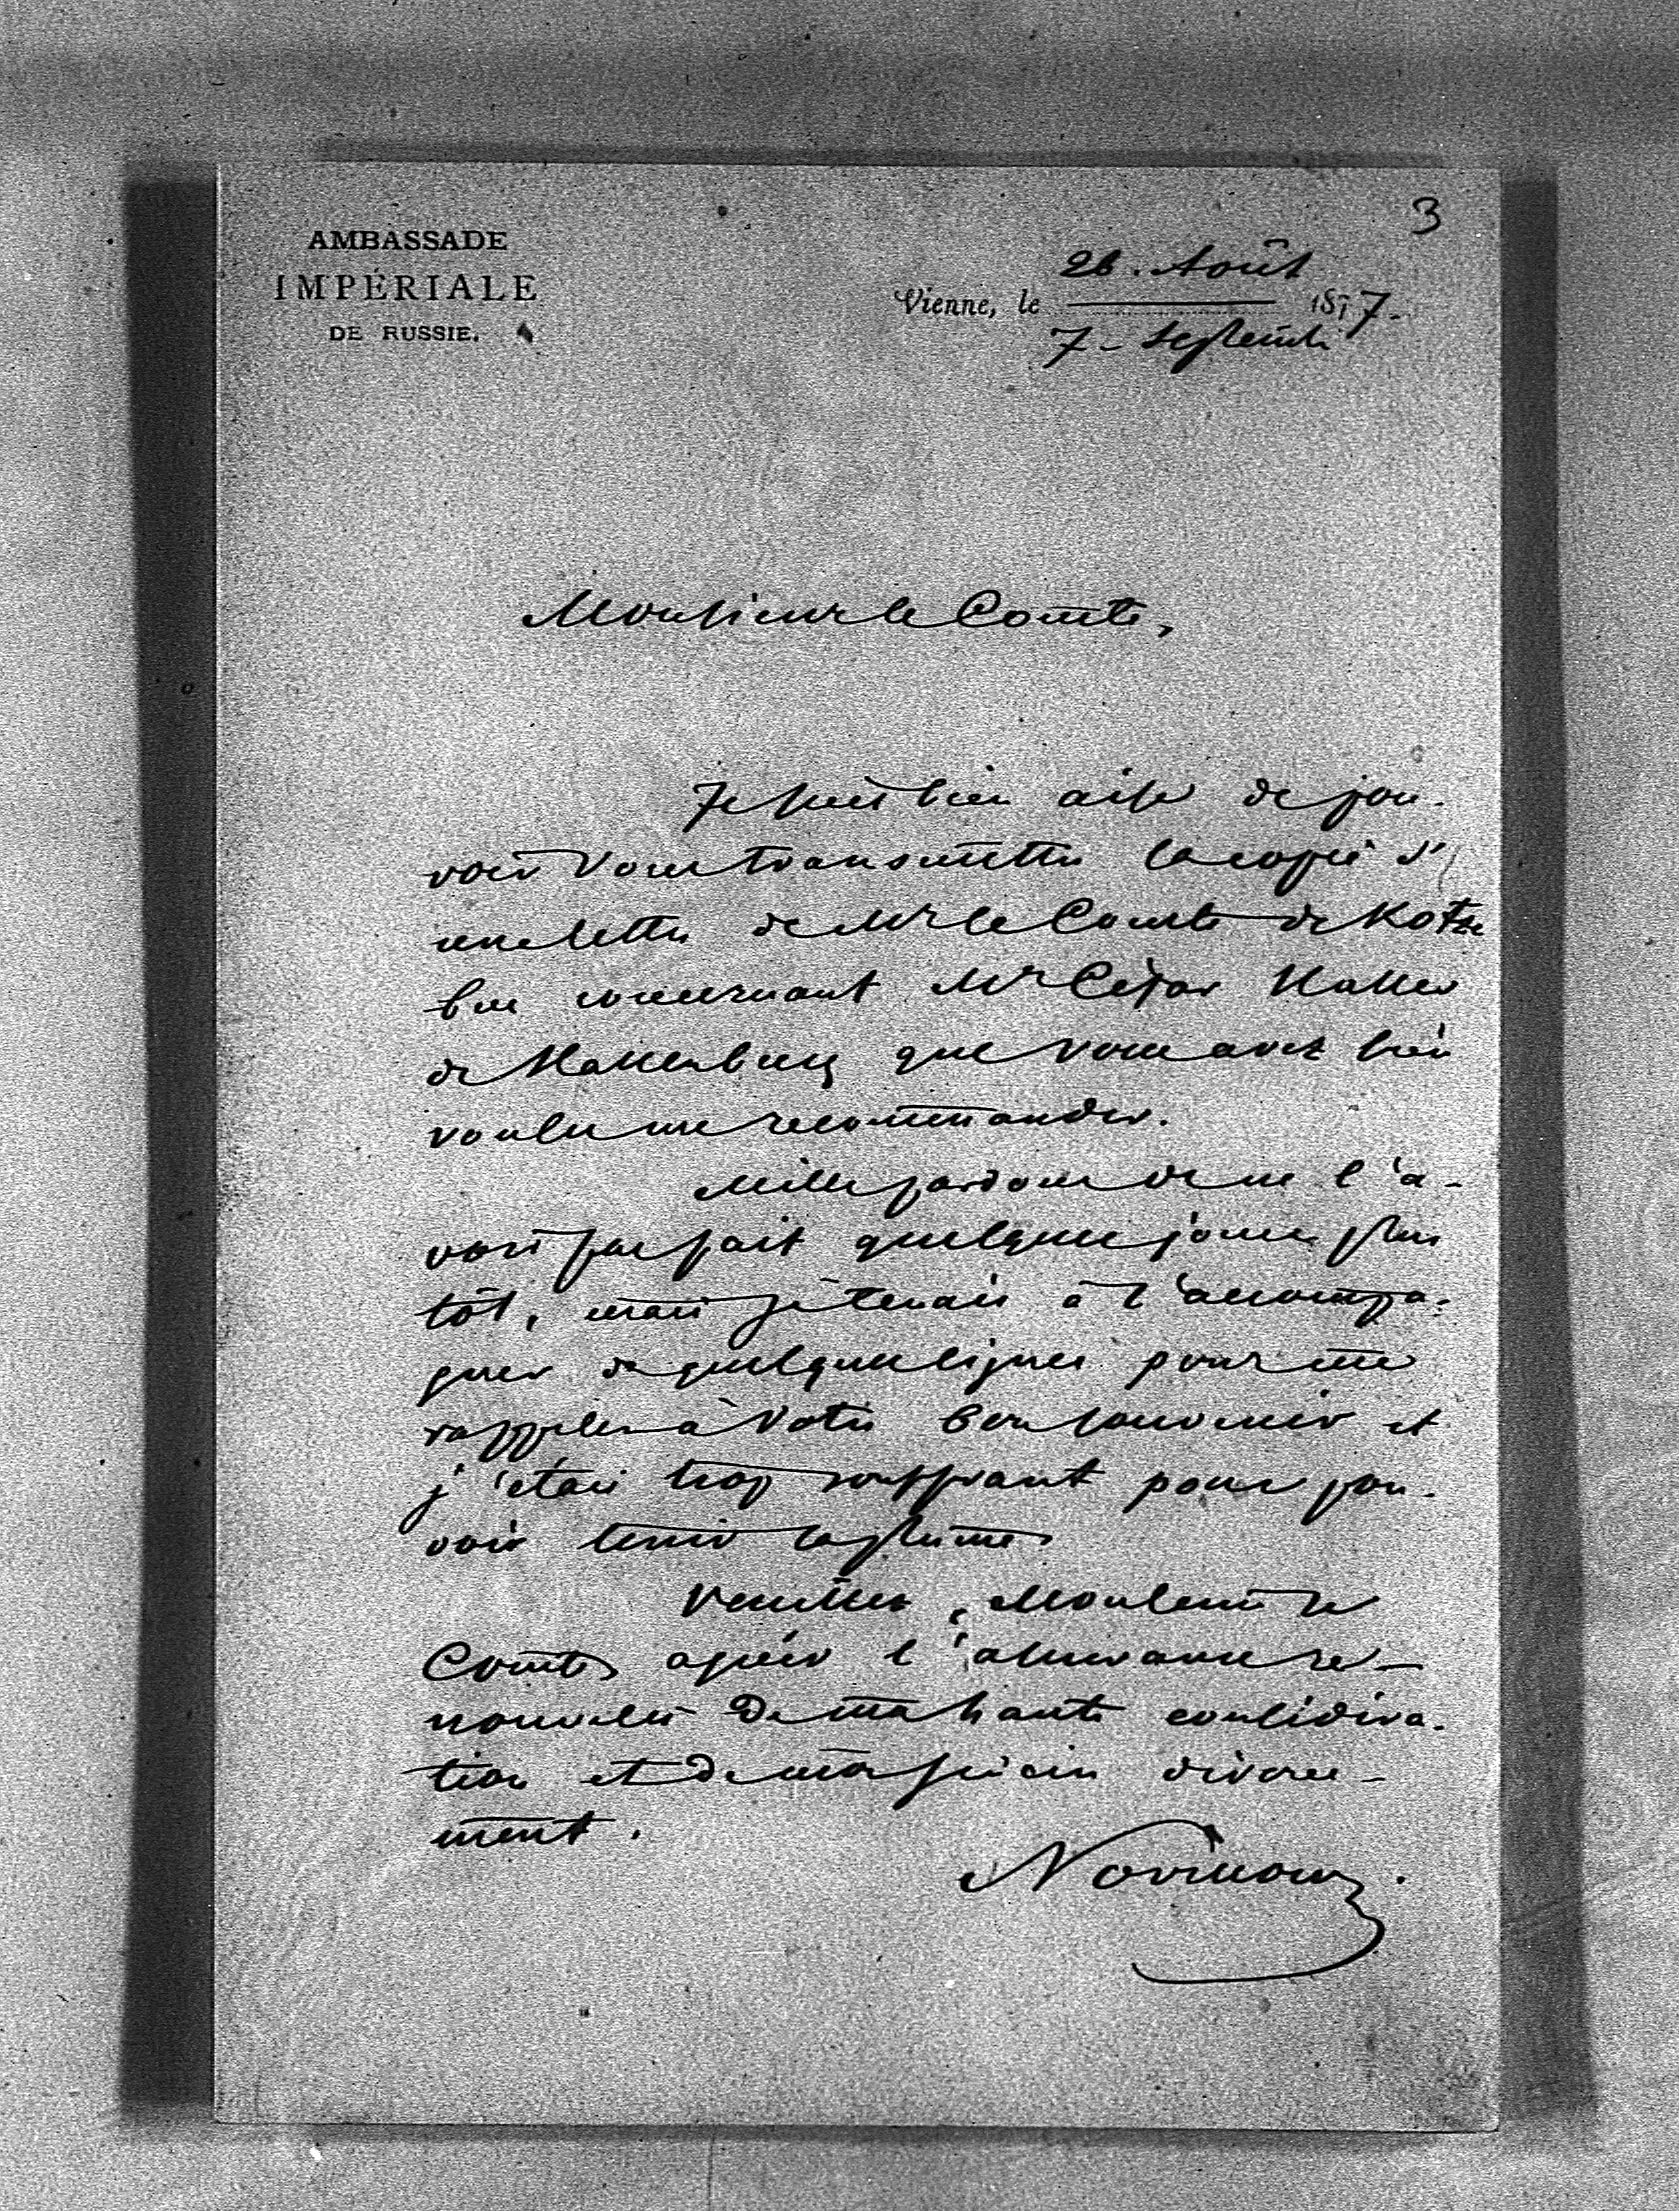 3
AMBASSADE
IMPÉRIALE
DE RUSSIE.
26. Août
Vienne, le 1877.
7 - Septemb.
Monsieur le Comte,
Je suis bien aise de pou-
voir Vous transmettre la copie d'
une lettre de Mr le Comte de Kotze
bue concernant Mr César Haller
de Hallenburg que vous avez bien
voulu me recommander.
Mille pardons de ne l'a-
voir pas fait quelques jours plus
tôt, mais je tenais à l'accompa-
gner de quelques lignes pour me
rappeler à Votre bon souvenir et
j'étais trop souffrant pour pou-
voir tenir la plume.
Veuillez, Monsieur le
Comte, agréer l'assurance re-
nouvelée de ma haute considéra-
tion et de mon sincère dévoue-
ment.
Novikow.